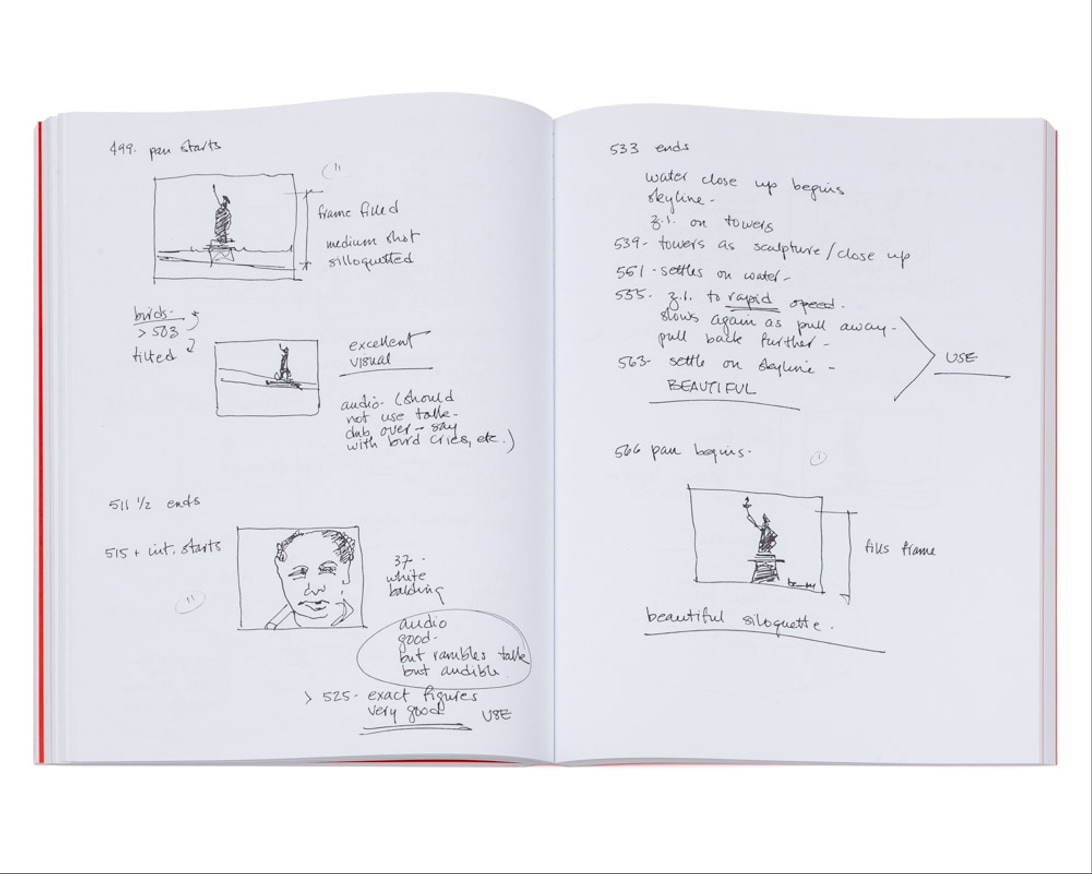 499. pan starts
11
frame filled
medium shot
silloquetted
birds.
> 503
tilted
excellent
visual
audio. (should
not use talk-
dub over - say
with bird cries, etc.)
511 1/2 ends
515 + int. starts
11
37.
white
balding
audio
good-
but rambles talk
but audible.
> 525. exact figures
very good USE
533 ends
water close up begins
skyline -
z.i. on towers
539- towers as sculpture/close up
551 - settles on water -
555. z.i. to rapid speed.
slows again as pull away -
pull back further -
USE
563- settle on skyline -
BEAUTIFUL
566 pan begins.
1
fills frame
beautiful siloquette.